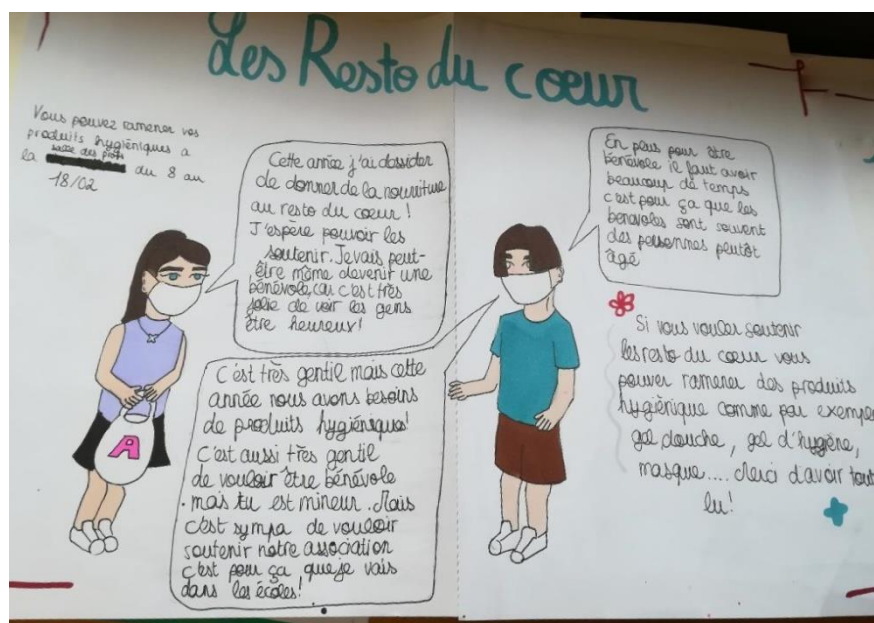 Les Resto du coeur
Vous pouvez ramener vos
produits hygiéniques a
salle des profs
la du 8 au
18/02
Cette année j'ai dossider
de donner de la nourriture
au resto du coeur !
J'espère pouvoir les
soutenir. Je vais peut-
être même devenir une
bénévole, car c'est très
jolie de voir les gens
être heureux!
En plus pour être
bénévole il faut avoir
beaucoup de temps
c'est pour ça que les
benevoles sont souvent
des personnes plutôt
âgé
C'est très gentil mais cette
année nous avons besoins
de produits hygiéniques!
C'est aussi très gentil
de vouloir être bénévole
mais tu est mineur. Mais
c'est sympa de vouloir
soutenir notre association
c'est pour ça que je vais
dans les écoles!
A
Si vous vouler soutenir
les resto du coeur vous
pouver ramener des produits
hygiénique comme par exemple
gel douche, gel d'hygiène,
masque.... Merci d'avoir tout
lu!